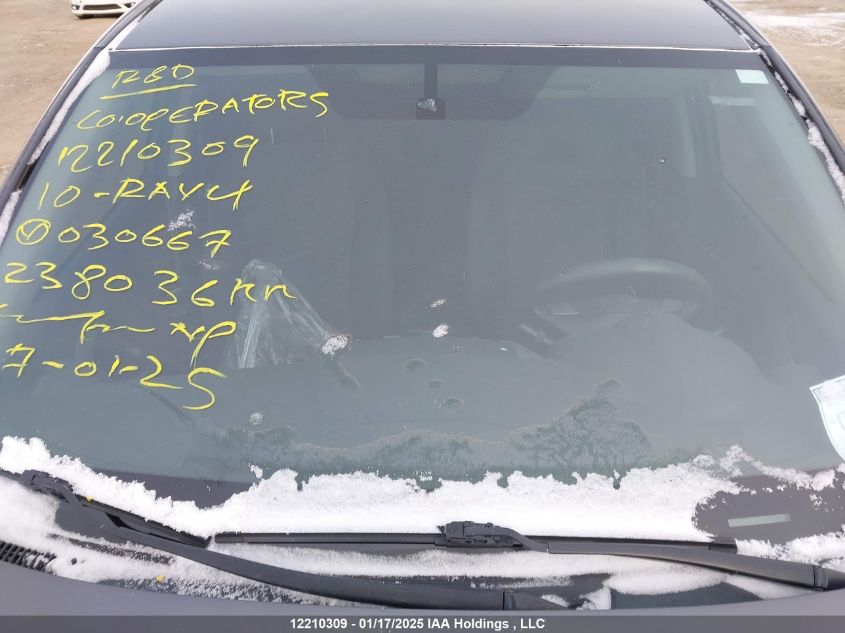 R&D
CO.OPERATORS
12210309
10-RAV4
V 030667
238036km
7-01-25
12210309 - 01/17/2025 IAA Holdings , LLC